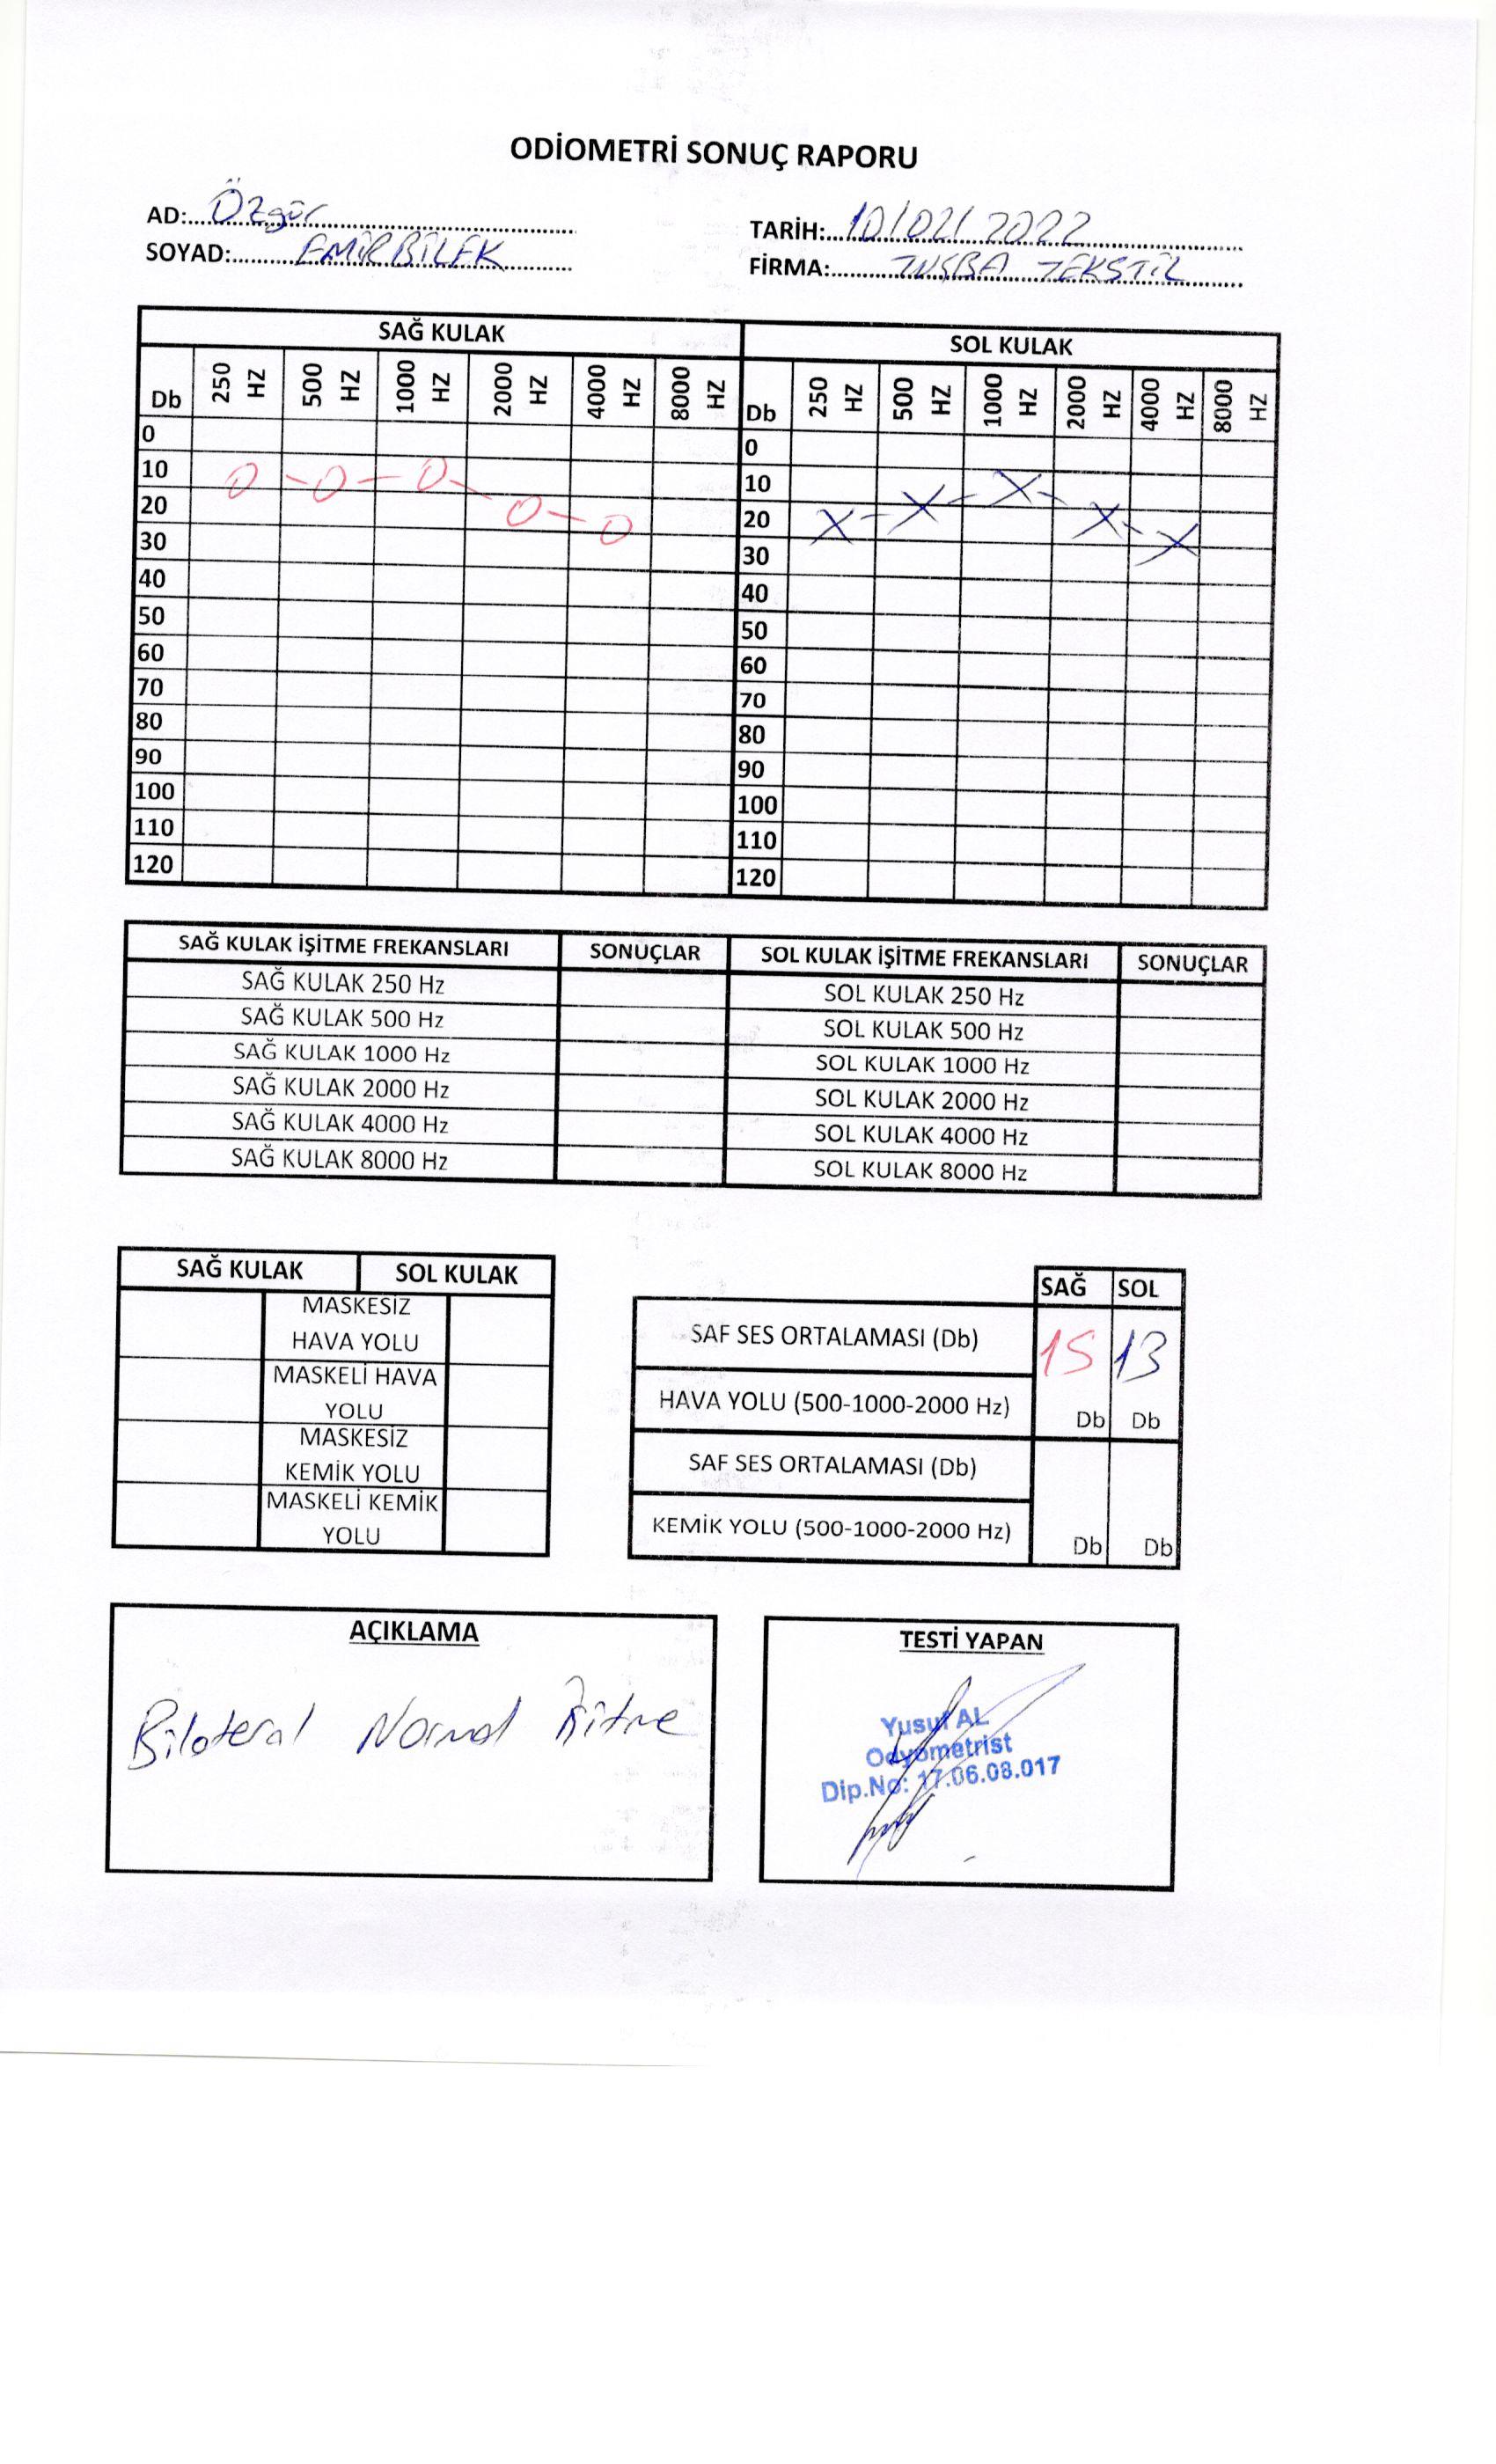 ODİOMETRİ SONUÇ RAPORU
AD: Özgür
TARİH: 10/02/2022
SOYAD: EMİRBİLEK
FİRMA: TUŞBA TEKSTİL
SAĞ KULAK SOL KULAK
Db 250 HZ 500 HZ 1000 HZ 2000 HZ 4000 HZ 8000 HZ Db 250 HZ 500 HZ 1000 HZ 2000 HZ 4000 HZ 8000 HZ
0 0
10 10
20 20
30 30
40 40
50 50
60 60
70 70
80 80
90 90
100 100
110 110
120 120
SAĞ KULAK İŞİTME FREKANSLARI SONUÇLAR SOL KULAK İŞİTME FREKANSLARI SONUÇLAR
SAĞ KULAK 250 Hz SOL KULAK 250 Hz
SAĞ KULAK 500 Hz SOL KULAK 500 Hz
SAĞ KULAK 1000 Hz SOL KULAK 1000 Hz
SAĞ KULAK 2000 Hz SOL KULAK 2000 Hz
SAĞ KULAK 4000 Hz SOL KULAK 4000 Hz
SAĞ KULAK 8000 Hz SOL KULAK 8000 Hz
SAĞ KULAK SOL KULAK
MASKESİZ
HAVA YOLU
MASKELİ HAVA
YOLU
MASKESİZ
KEMİK YOLU
MASKELİ KEMİK
YOLU
SAĞ SOL
SAF SES ORTALAMASI (Db) 15 13
HAVA YOLU (500-1000-2000 Hz) Db Db
SAF SES ORTALAMASI (Db)
KEMİK YOLU (500-1000-2000 Hz) Db Db
AÇIKLAMA
Bilateral Normal İşitme
TESTİ YAPAN
Yusuf AL
Odyometrist
Dip.No: 17.06.08.017